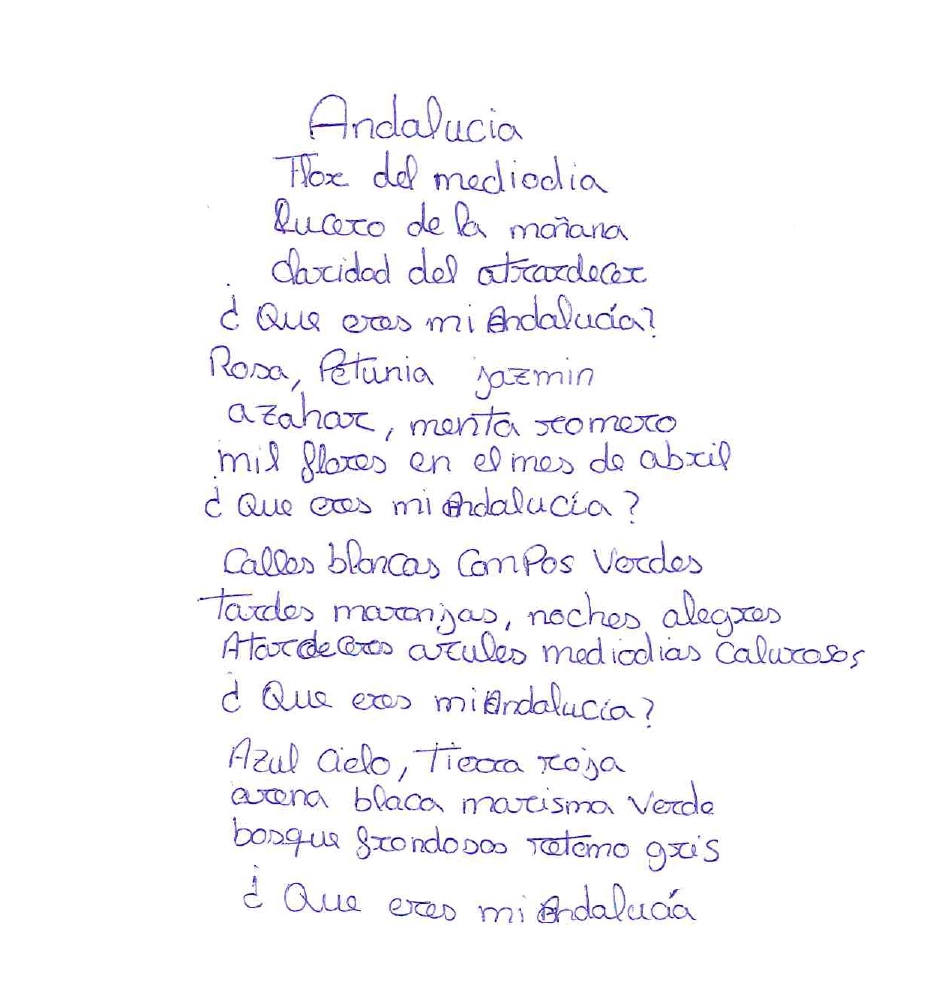 Andalucia
Flor del mediodia
lucero de la mañana
claridad del atrardecer
¿ Que eres mi Andalucía?
Rosa, Petunia jazmin
azahar, menta romero
mil flores en el mes de abril
¿ Que eres mi Andalucía ?
Calles blancas Campos Verdes
tardes maranjas, noches alegres
Atardeceres azules mediodias Calurosos
¿ Que eres mi Andalucia?
Azul Cielo, Tierra roja
arena blaca marisma Verde
bosque frondosos retamo gris
¿ Que eres mi Andalucía